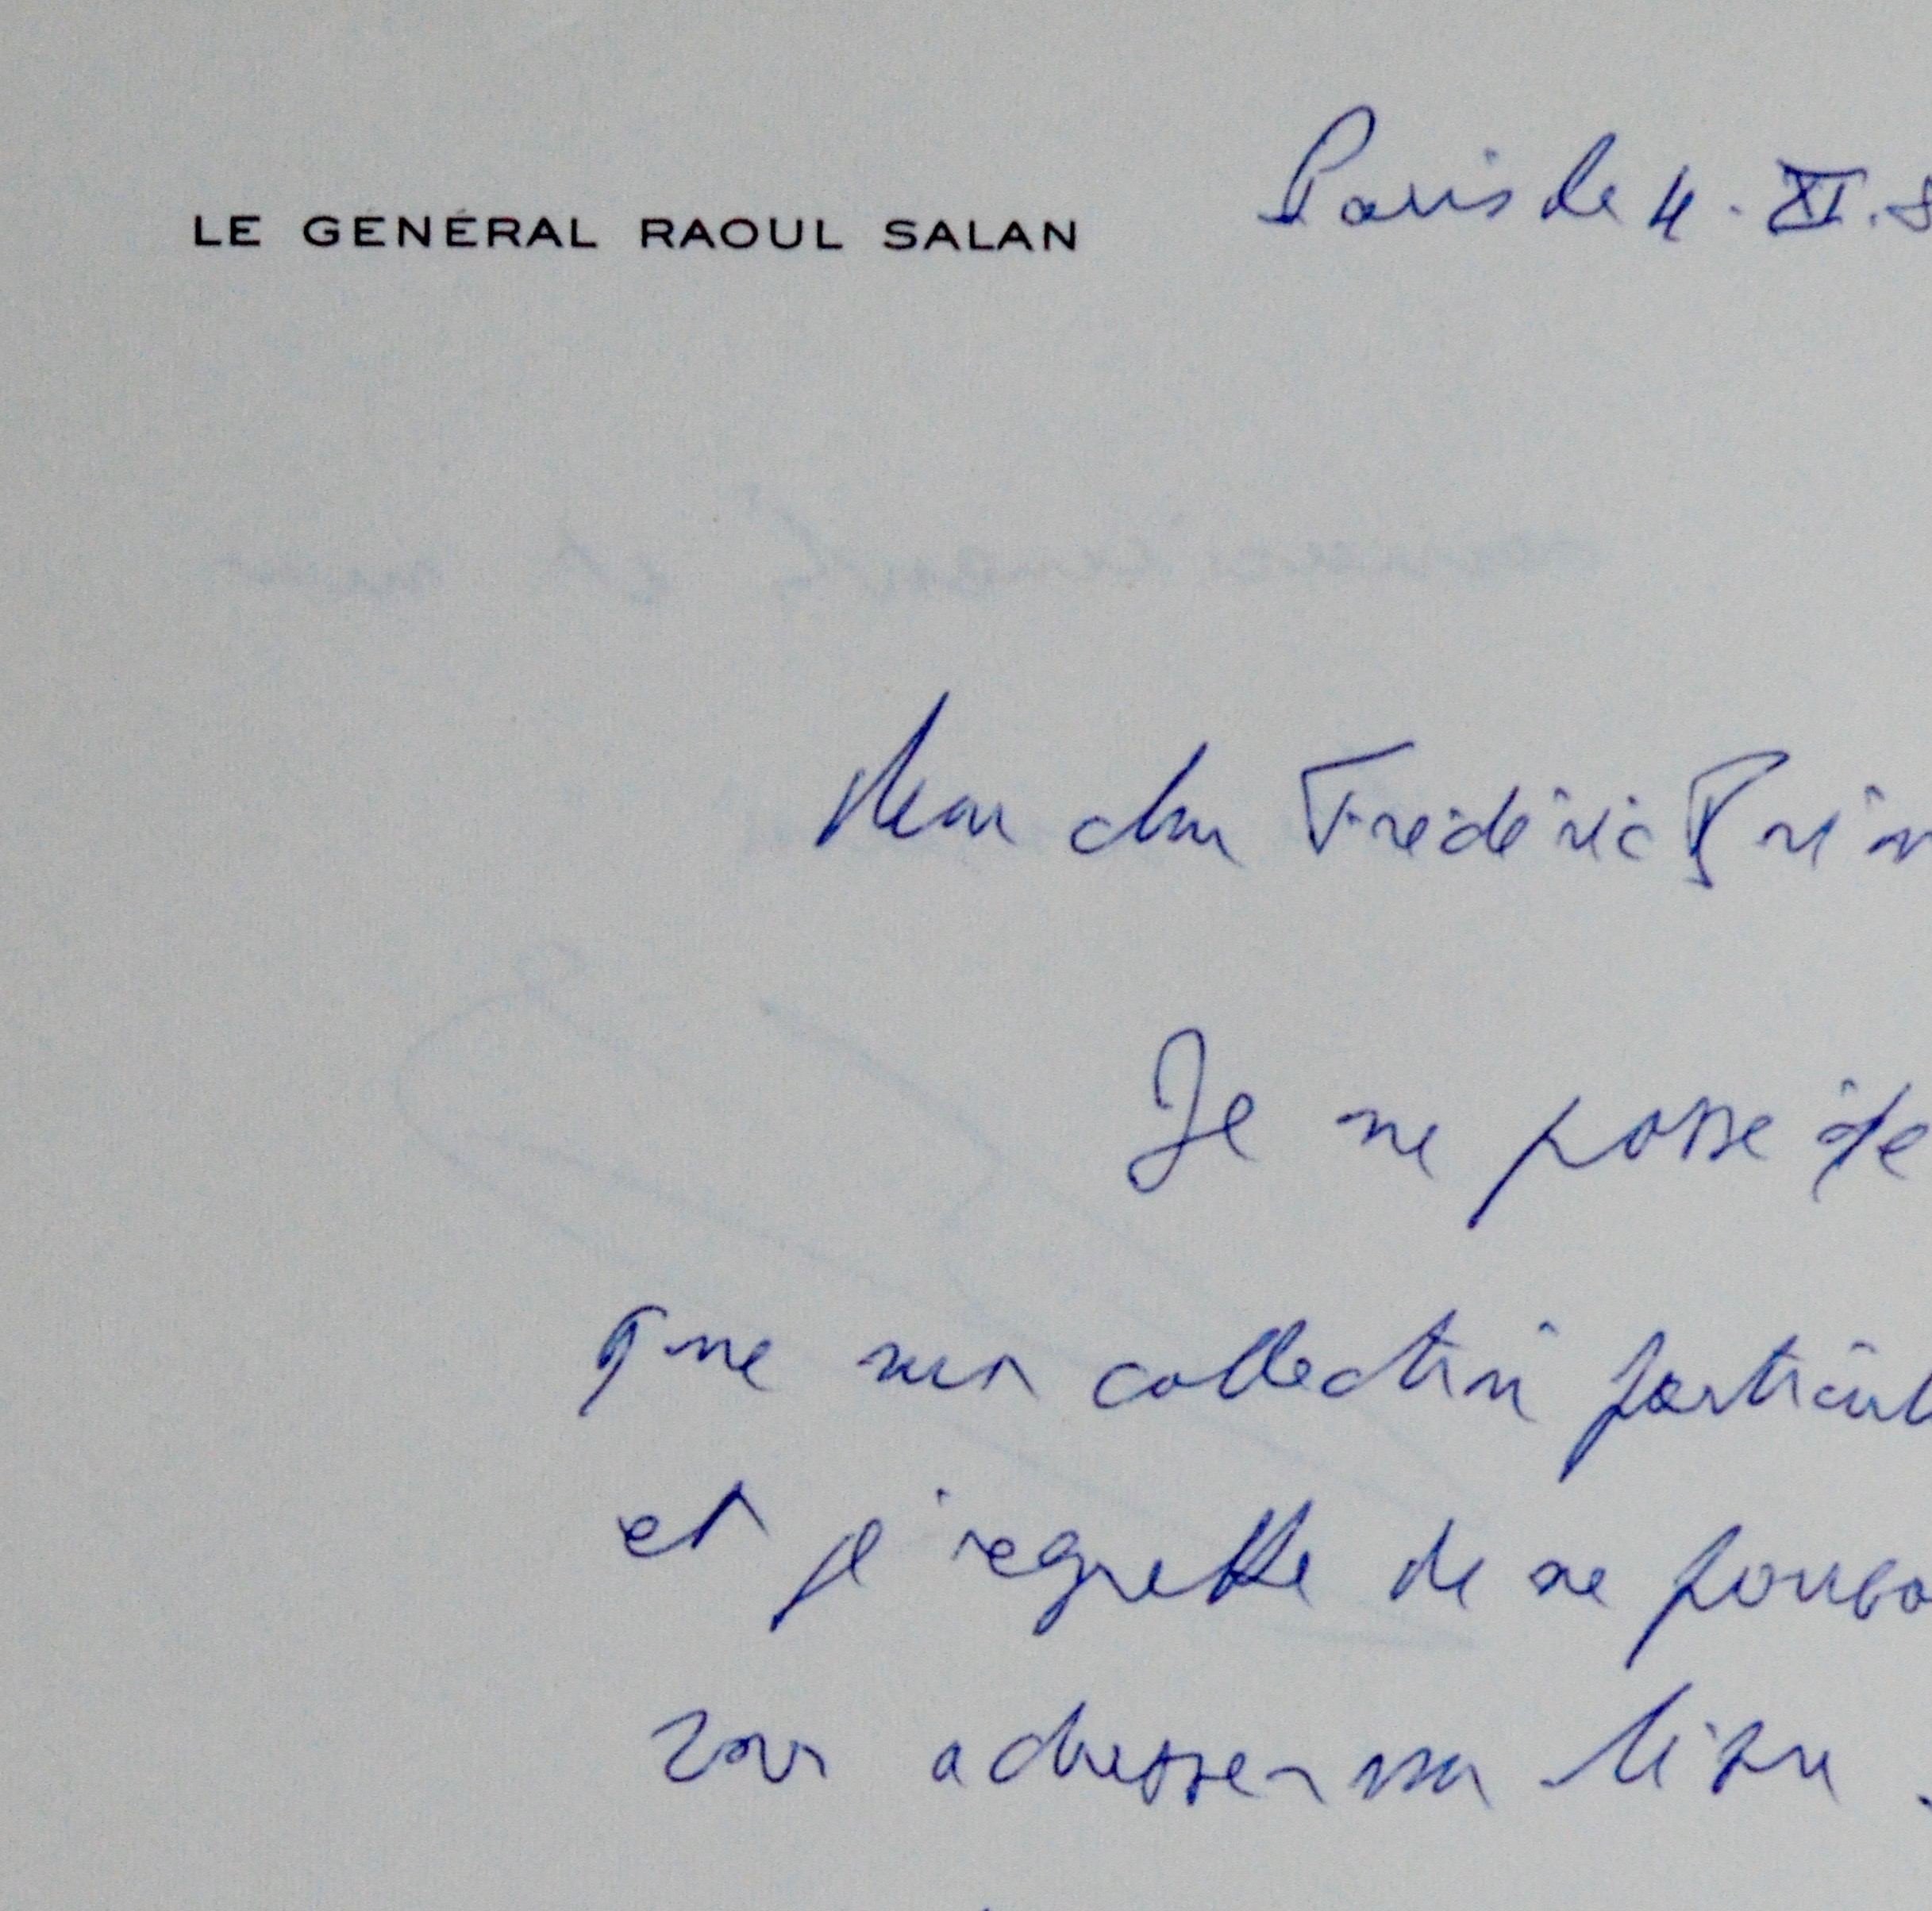 LE GÉNÉRAL RAOUL SALAN
Paris le 4.XI.8
Mon cher Frédéric Prin
Je ne possède
que ma collection particul
et je regrette de ne pouvo
vous adresser un livre.